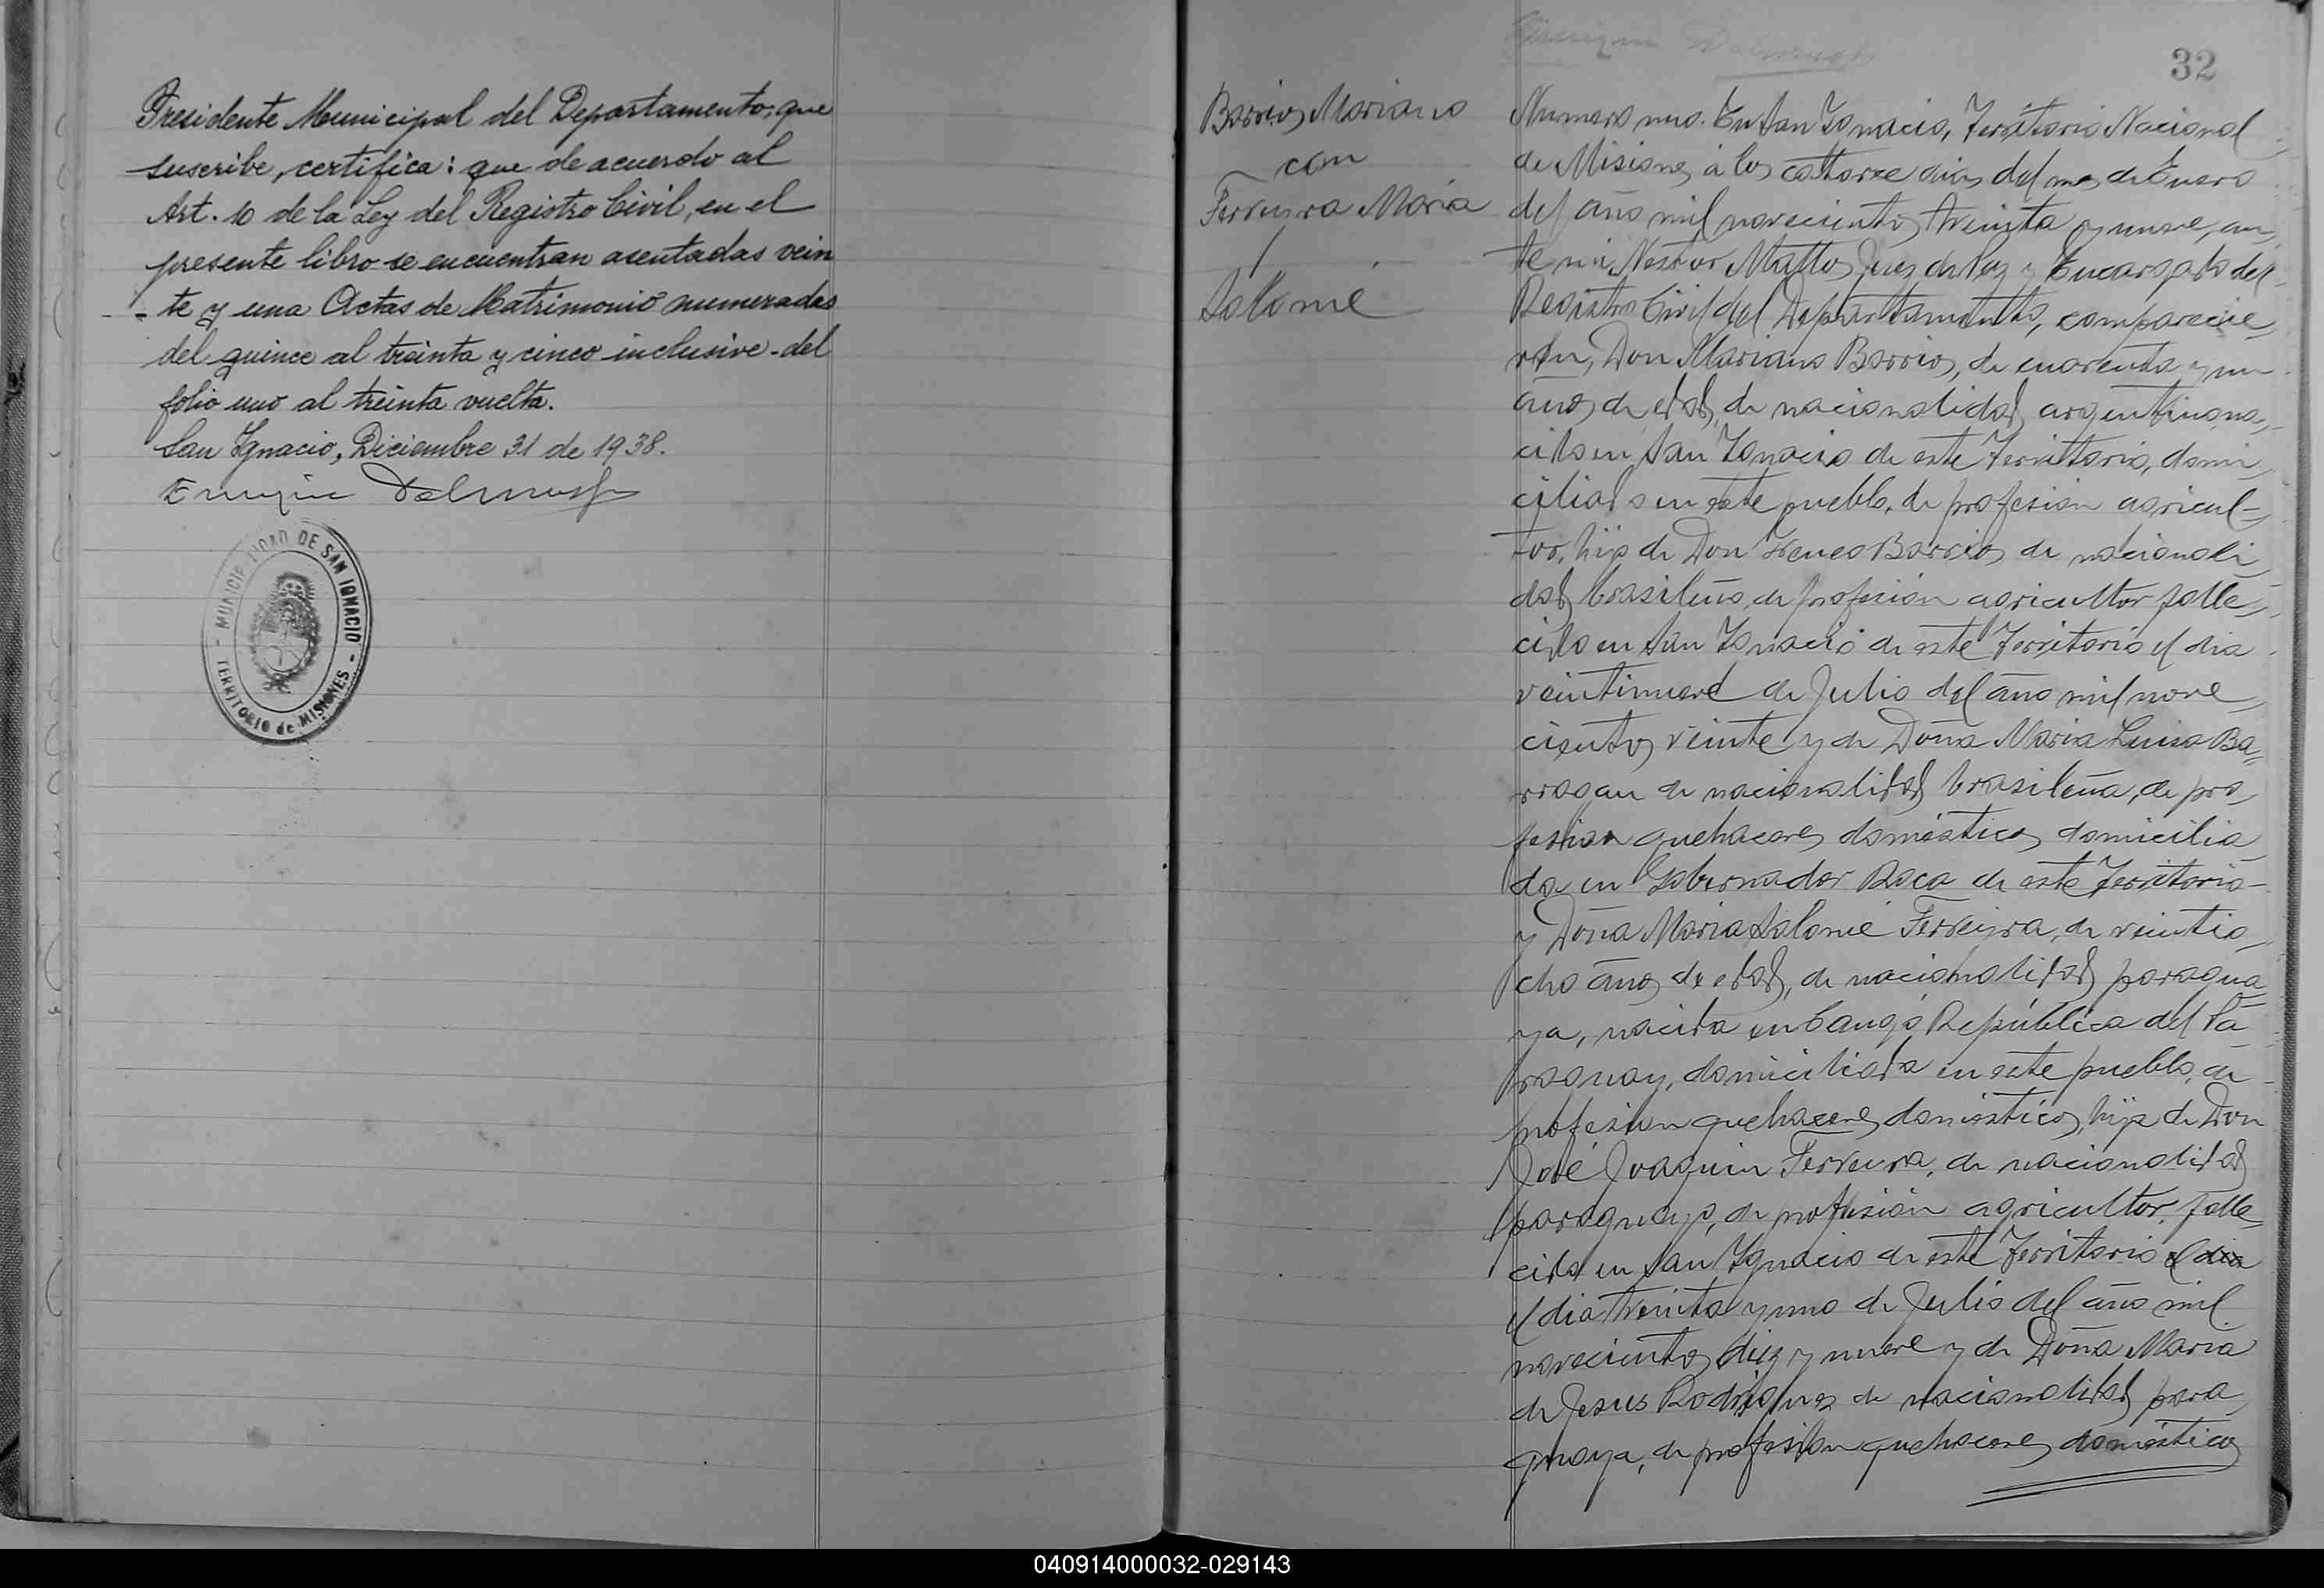 Presidente Municipal del Departamento, que
suscribe, certifica: que de acuerdo al
Art. 10 de la Ley del Registro Civil, en el
presente libro se encuentran asentadas vein
- te y una Actas de Matrimonio numeradas
del quince al treinta y cinco inclusive - del
folio uno al treinta vuelta.
San Ignacio, Diciembre 31 de 1938.
Enrique
MUNICIPALIDAD DE SAN IGNACIO
- TERRITORIO de MISIONES -
32
Barrios Mariano
con
Ferreyra Maria
/
Salomé
Numero uno. En San Ignacio, Territorio Nacional
de Misiones, á los catorce dias del mes de Enero
del año mil novecientos treinta y nueve, an-
te mi Nestor Matto, Juez de Paz y Encargado del
Registro Civil del Departamento, comparecie-
ron, Don Mariano Barrios, de cuarenta y un
años de edad, de nacionalidad argentino, na-
cido en San Ignacio de este Territorio, domi-
ciliado en este pueblo, de profesion agricul-
tor, hijo de Don Ireneo Barrios de nacionali-
dad brasileño, de profesión agricultor falle-
cido en San Ignacio de este Territorio el dia
veintinueve de Julio del año mil nove-
cientos veinte y de Doña Maria Luisa Ba-
rragan de nacionalidad brasileña, de pro-
fesion quehaceres domésticos domicilia-
da en Gobernador Roca de este Territorio -
y Doña Maria Salomé Ferreyra, de veintio-
cho años de edad, de nacionalidad paragua-
ya, nacida en Cangó República del Pa-
raguay, domiciliada en este pueblo, de
profesion quehaceres domésticos, hija de Don
José Joaquin Ferreyra, de nacionalidad
paraguayo, de profesión agricultor, falle-
cido en San Ignacio de este Territorio el dia
el dia treinta y uno de Julio del año mil
novecientos diez y nueve y de Doña Maria
de Jesus Rodriguez de nacionalidad para-
guaya, de profesion quehaceres domésticos
040914000032-029143